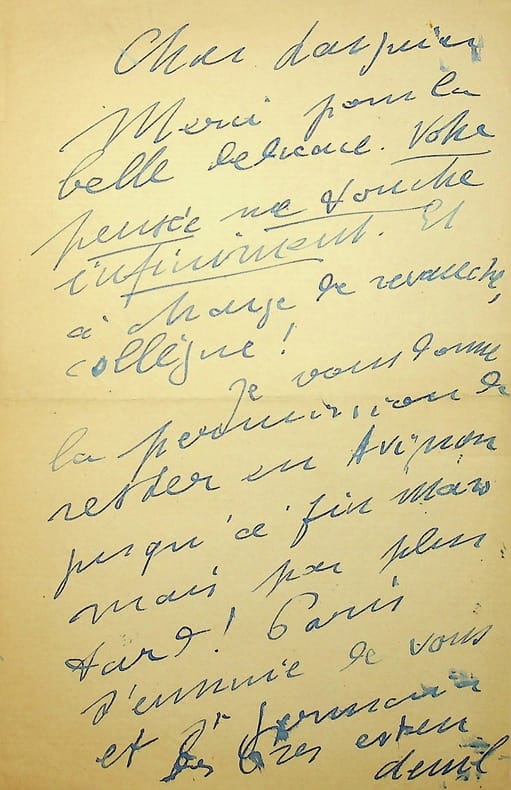 Cher Larguier
Merci pour la
belle dedicace. Votre
pensée me touche
infiniment. Et
à charge de revanche,
collègue !
Je vous donne
la permission de
rester en Avignon
jusqu'à fin Mars
mais pas plus
tard ! Paris
s'ennuie de vous
et St Germain
des Prés est en
deuil